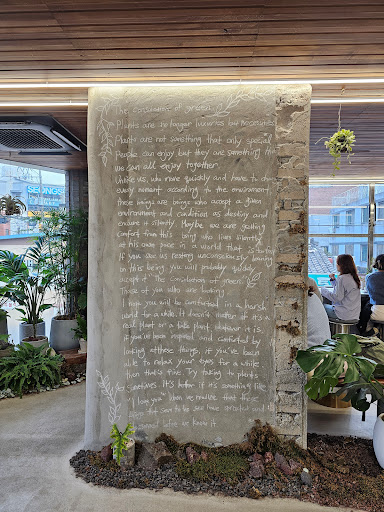 The consolation of green
Plants are no longer luxuries but necessities
Plants are not something that only special
People can enjoy but they are something that
we can all enjoy together.
Unlike us who move quickly and have to change
every moment according to the environment
these beings are beings who accept a given
environment and condition as destiny and
endure it silently Maybe we are getting
Comfort from this being who lives silently
at his own pace in a world that is
If you see us resting unconsciously leaning
on this being you will probably quickly
accept it The consolation of green
Those of you who were looking
I hope you will be comforted in a harsh
world for a while. It doesn't matter if it's a
real plant or a fake plant whatever it is,
if you've been inspired and comforted by
looking at these things, if you've been
able to relax your eyes for a while
then that's true. Try talking to plants
sometimes. It's better if it's something like
"I love you" When we realize that their